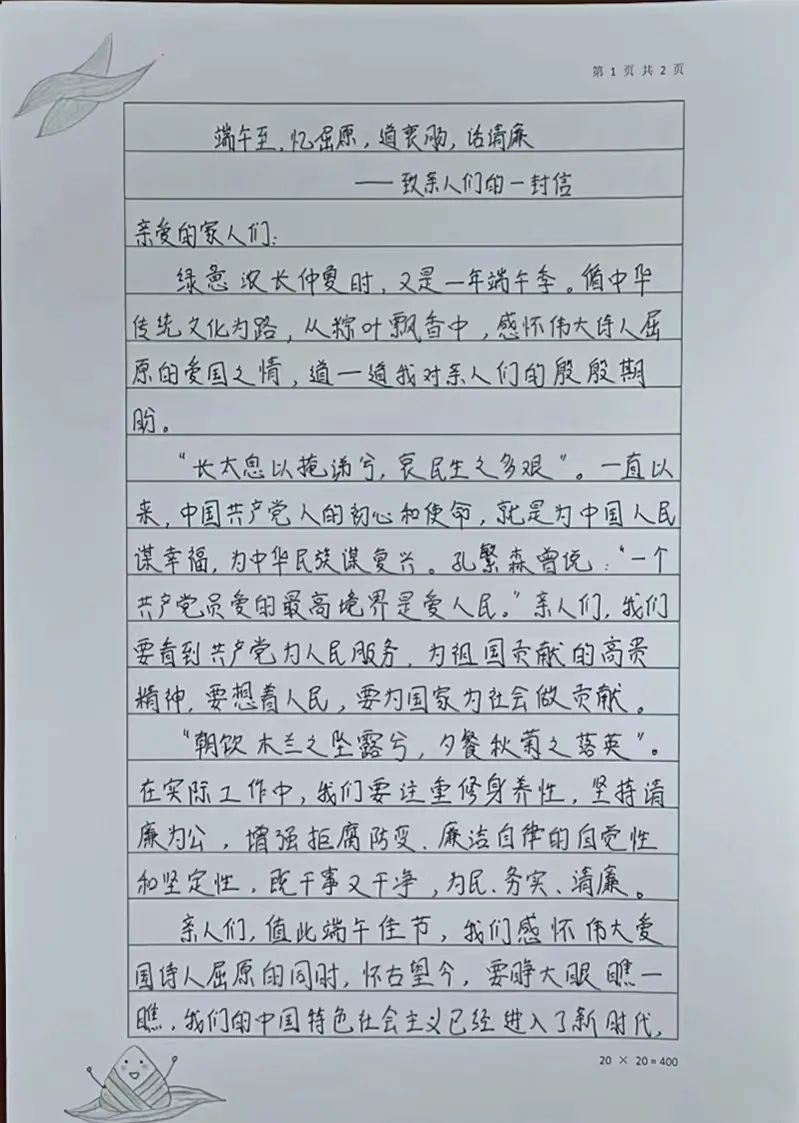 第 1 页 共 2 页
端午至，忆屈原，道衷肠，话清廉
——致亲人们的一封信
亲爱的家人们：
绿意浓长仲夏时，又是一年端午季。循中华
传统文化为路，从粽叶飘香中，感怀伟大诗人屈
原的爱国之情，道一道我对亲人们的殷殷期
盼。
“长太息以掩涕兮，哀民生之多艰”。一直以
来，中国共产党人的初心和使命，就是为中国人民
谋幸福，为中华民族谋复兴。孔繁森曾说：“一个
共产党员爱的最高境界是爱人民。”亲人们，我们
要看到共产党为人民服务，为祖国贡献的高贵
精神，要想着人民，要为国家为社会做贡献。
“朝饮木兰之坠露兮，夕餐秋菊之落英”。
在实际工作中，我们要注重修身养性，坚持清
廉为公，增强拒腐防变、廉洁自律的自觉性
和坚定性，既干事又干净，为民、务实、清廉。
亲人们，值此端午佳节，我们感怀伟大爱
国诗人屈原的同时，怀古望今，要睁大眼瞧一
瞧，我们的中国特色社会主义已经进入了新时代，
20 × 20 = 400